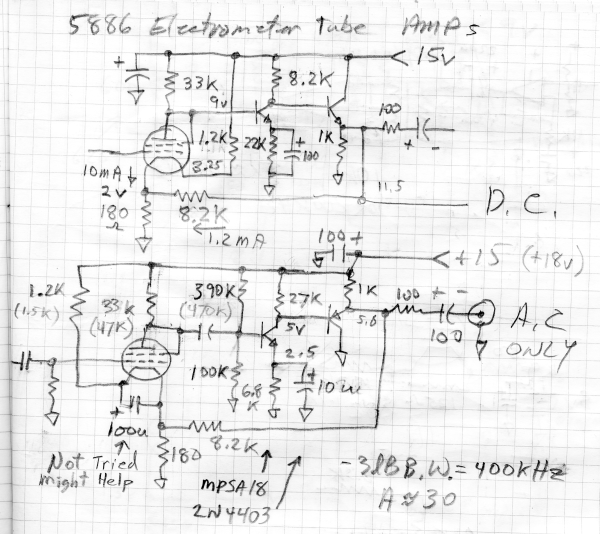 5886 Electrometer Tube AMPs
+
15v
33K
8.2K
9v
1.2K
22K
+
100
1K
100
+ -
3.25
10mA
2v
11.5
180
Ω
8.2K
1.2mA
D.C.
100 +
+15 (+18v)
1.2K
(1.5K)
33K
(47K)
390K
(470K)
27K
1K
100
+ -
5v
5.6
100
A.C
ONLY
2.5
100K
6.8
K
+
10u
+
100u
8.2K
180
Not Tried
might Help
MPSA18
2N4403
-3dB B.W. = 400kHz
A≈30